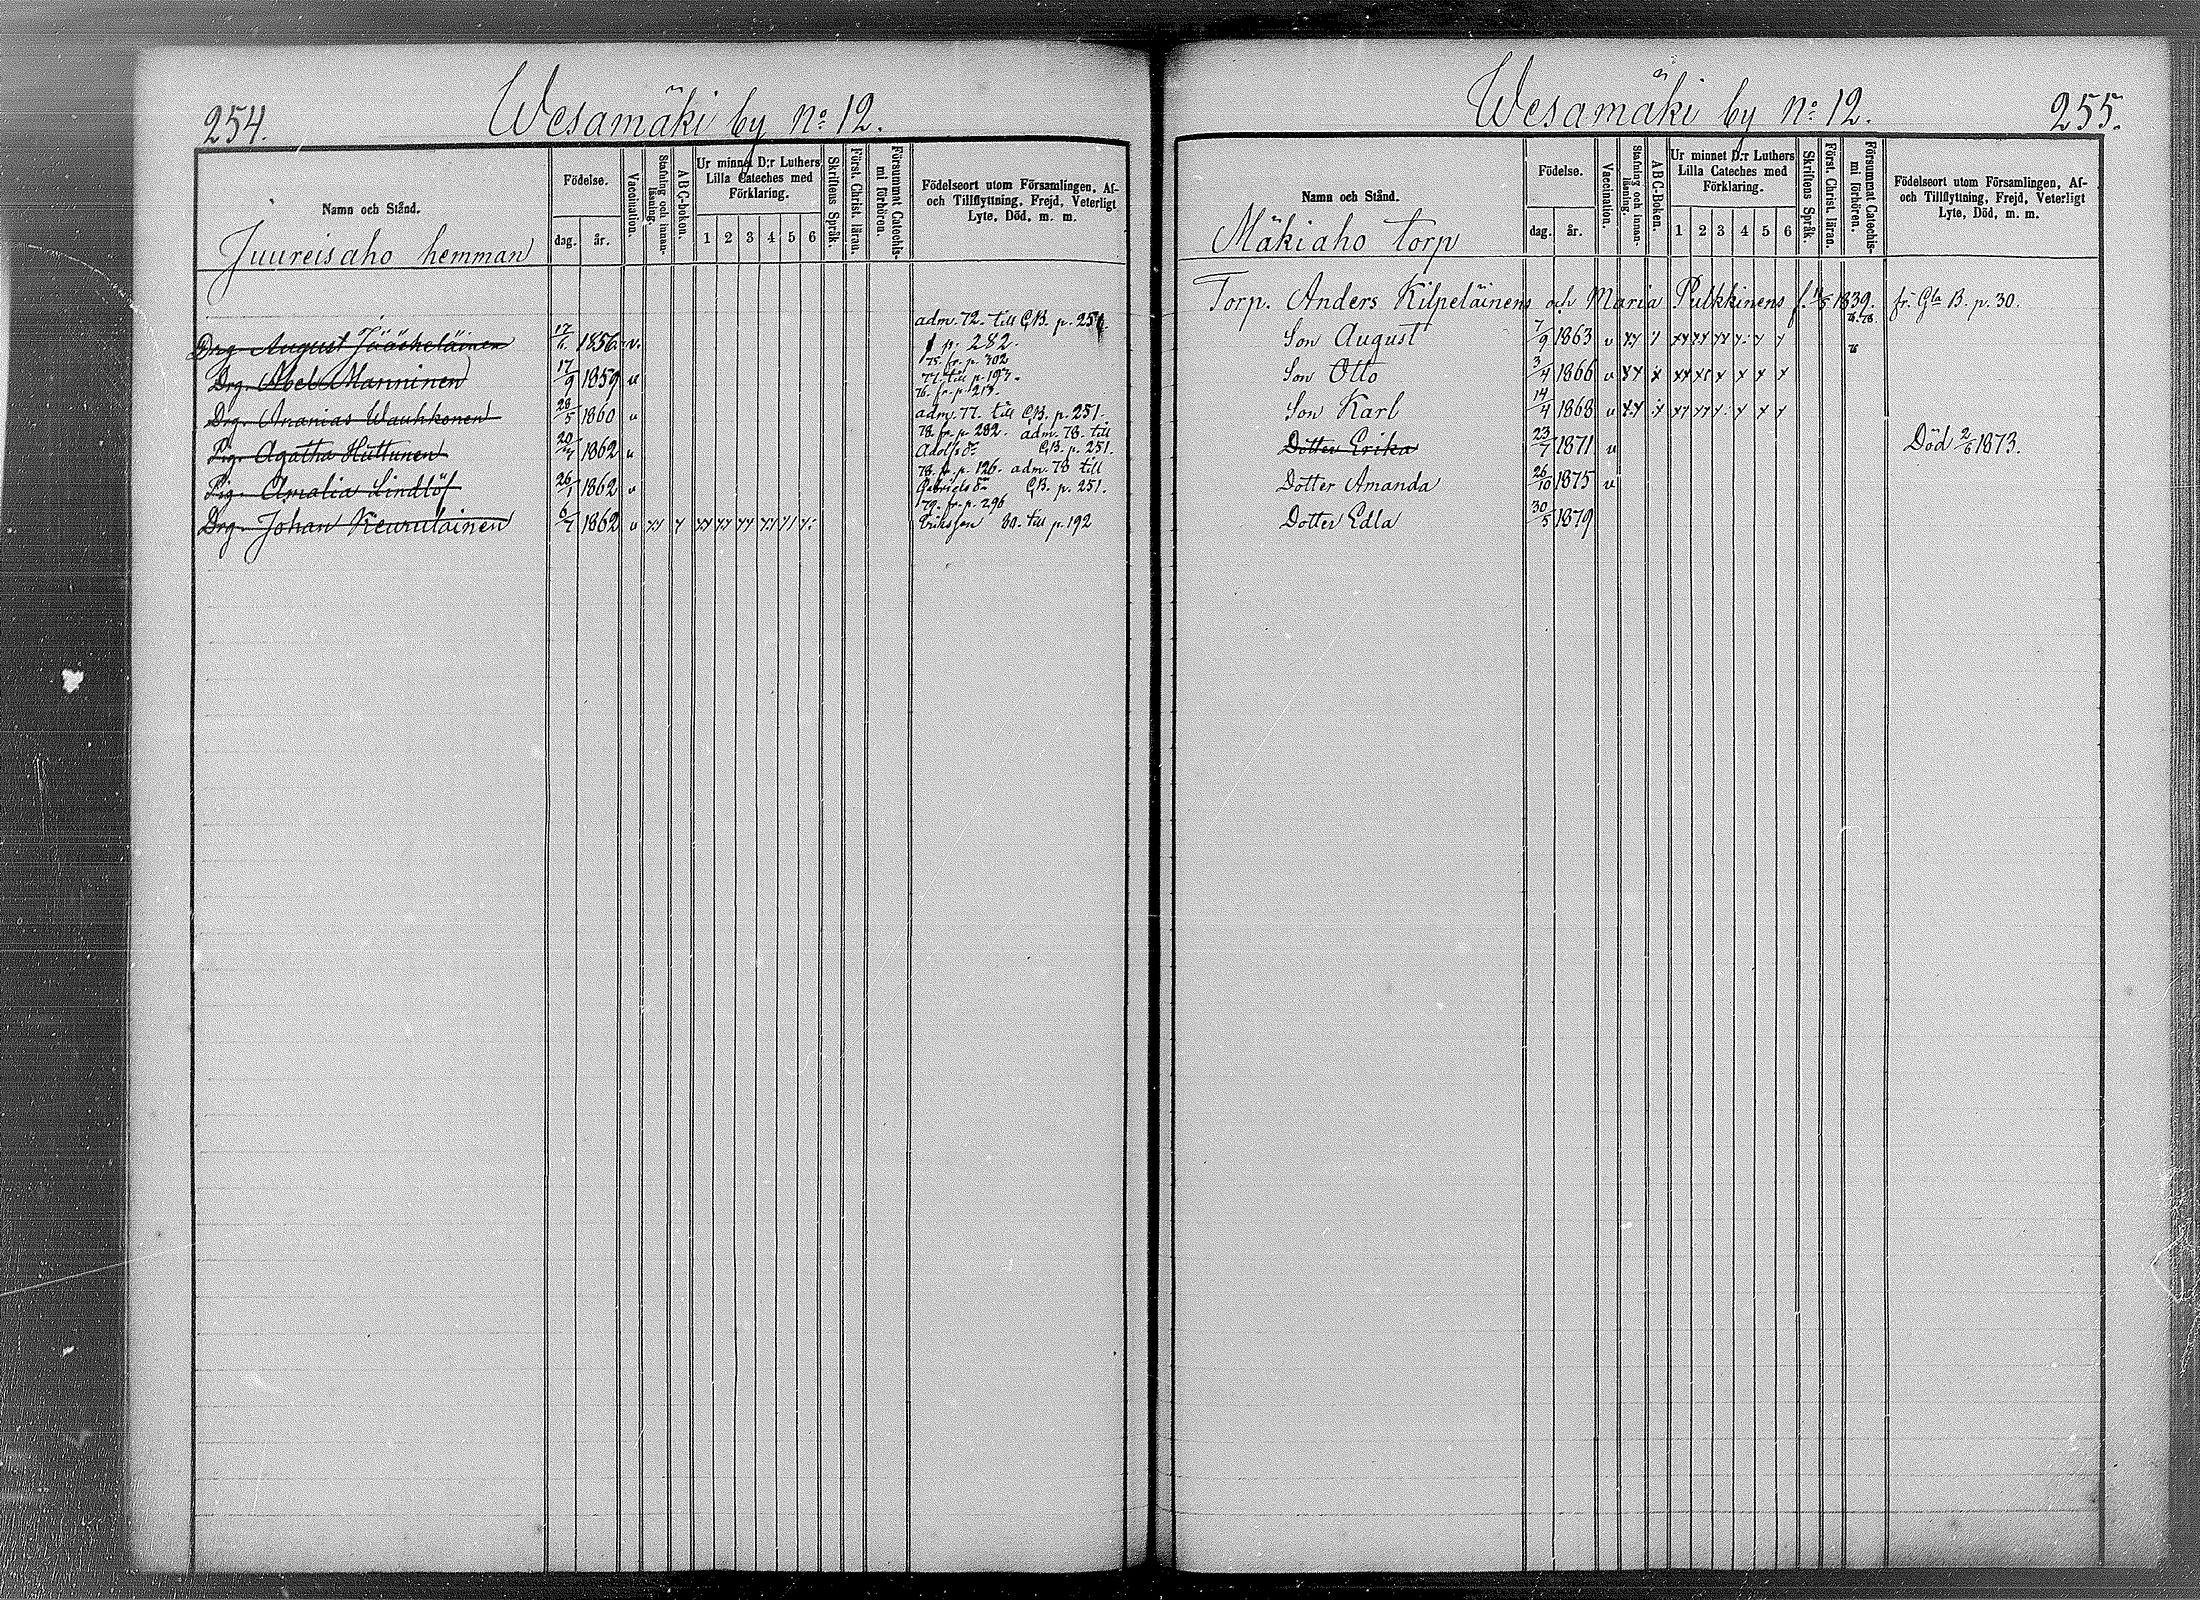 254.
Wesamäki by No 12.
Namn och Stånd.
Födelse.
dag.
år.
Vaccination.
Stafning och innan-läsning.
ABC-boken.
Ur minnet D:r Luthers
Lilla Cateches med
Förklaring.
1 2 3 4 5 6
Skriftens Språk.
Först. Christ. läran.
Försummat Catechis-
mi förhören.
Födelseort utom Församlingen, Af-
och Tillflyttning, Frejd, Veterligt
Lyte, Död, m. m.
Juureisaho hemman
Drg. August Jääskeläinen 17/11 1856 v. adm. 72. till C.B. p. 251.
p. 282.
Drg. Abel Manninen 17/9 1859 v 75. fr. p. 302
77. till p. 197.
Drg. Ananias Wauhkonen 28/5 1860 v 76. fr. p. 213.
adm. 77. till C.B. p. 251.
Pig. Agatha Huttunen 20/4 1862 v 78. fr. p. 282. adm. 78. till
Adolfs dr C.B. p. 251.
Pig. Amalia Lindlöf 26/1 1862 v 78. fr. p. 126. adm. 78 till
Gabriels dr C.B. p. 251.
Drg. Johan Keurulainen 6/7 1862 v 79. fr. p. 296
Eriksson 80. till p. 192
Wesamäki by No 12.
255.
Namn och Stånd.
Födelse.
dag.
år.
Vaccination.
Stafning och innan-
läsning.
ABC-Boken.
Ur minnet D:r Luthers
Lilla Cateches med
Förklaring.
1 2 3 4 5 6
Skriftens Språk.
Först. Christ. läran.
Försummat Catechis-
mi förhören.
Födelseort utom Församlingen, Af-
och Tillflyttning, Frejd, Veterligt
Lyte, Död, m. m.
Mäkiaho torp
Torp. Anders Kilpeläinens och Maria Pulkkinens f. 1839. fr. Gla B. p. 30.
Son August 7/9 1863 v
Son Otto 3/4 1866 v
Son Karl 14/4 1868 v
Dotter Erika 23/7 1871 v Död 2/6 1873.
Dotter Amanda 26/10 1875 v
Dotter Edla 30/5 1879